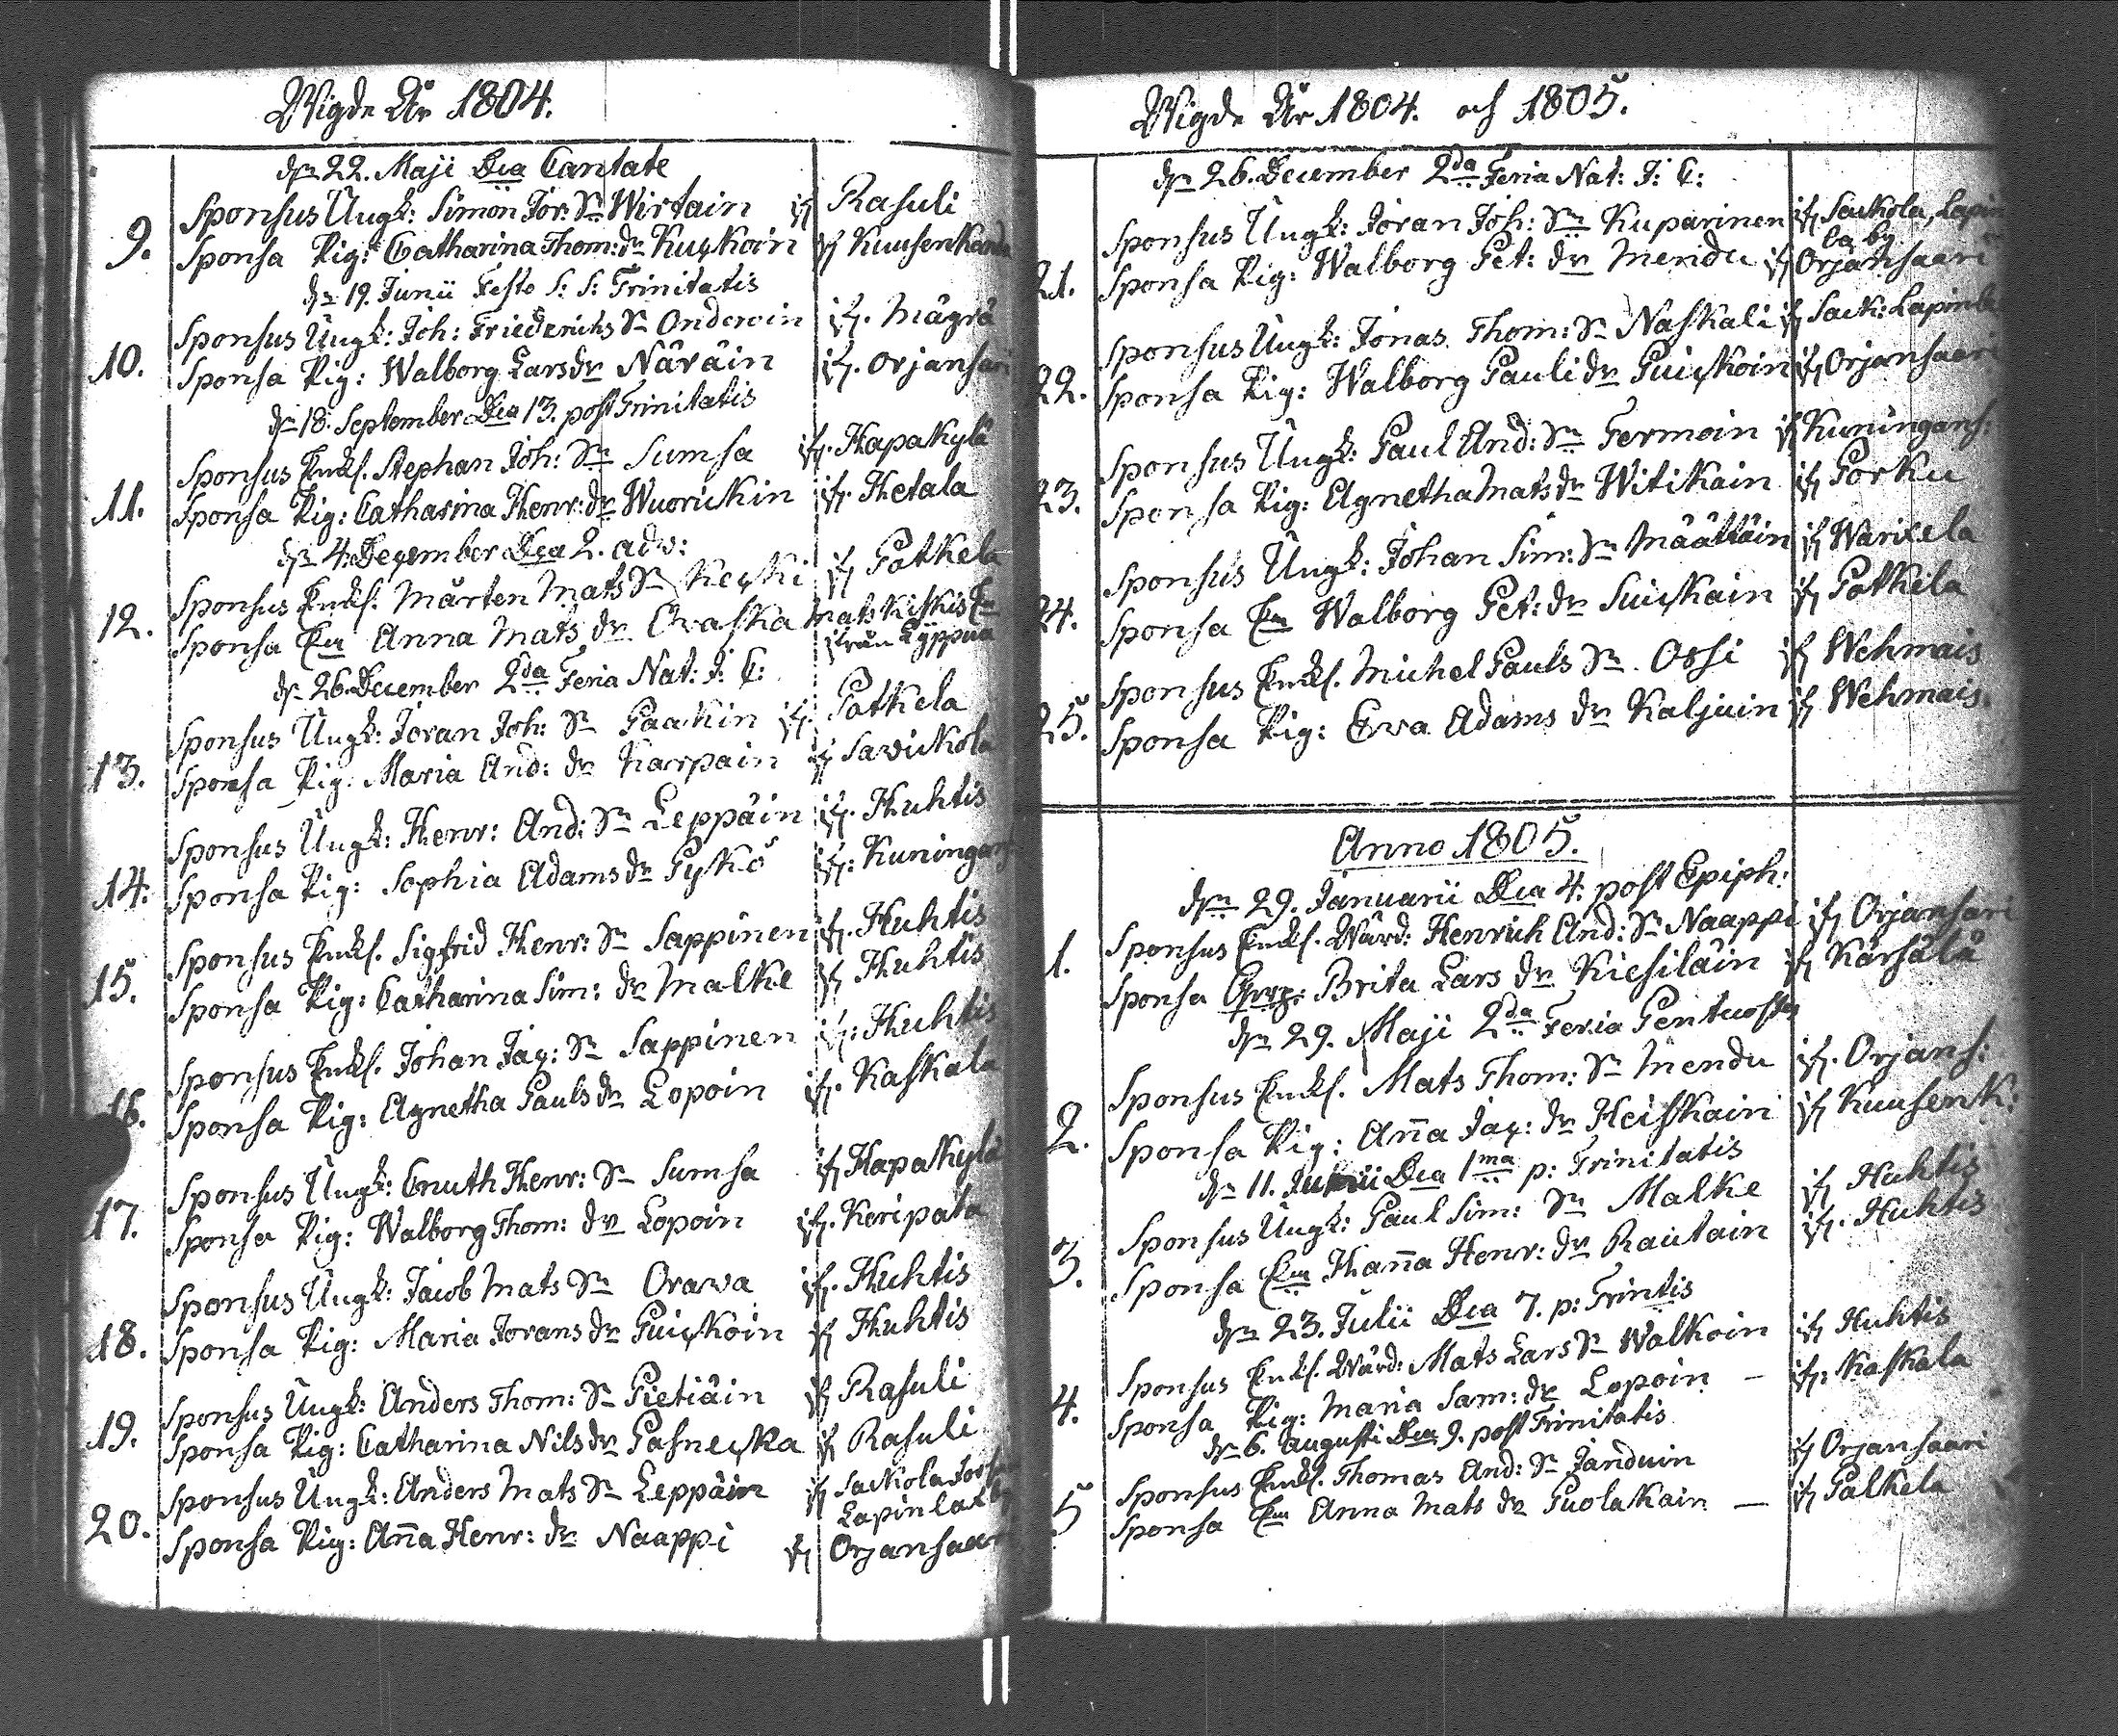 Wigde År 1804.
dn 22. Maji Dca Cantate
Sponsus Ungk: Simon Jör: Sn Wirtain if Rasuli
9. Sponsa Pig: Catharina Thom: dr Kuckoin if Kuusenkanda
dn 19. Junii Festo S: S: Trinitatis
Sponsus Ungk: Joh: Friedrichs Sn Onderoin if. Mägrä
10. Sponsa Pig: Walborg Larsdr Näräin if. Orjansari
dn 18. September Dca 13. post Trinitatis
Sponsus Enkl. Stephan Joh: Sn Sumsa if. Hapakylä
11. Sponsa Pig: Catharina Henr: dr Wuorickin if. Hetala
dn 4. December Dca 2. adv:
Sponsus Enkl. Mårten Mats Sn Kecki if Potkela
12. Sponsa Ea Anna Mats dr Oraska Mats Kiskis Ea
från Kyppua
dn 26. December 2da Feria Nat: J: C:
Sponsus Ungk: Jöran Joh: Sn Paakin if. Potkela
13. Sponsa Pig. Maria And: dr Karpain if Savickola
Sponsus Ungk: Henr: And: Sn Leppäin if. Huhtis
14. Sponsa Pig: Sophia Adams dr Pyckö if: Kuningans
Sponsus Enkl. Sigfrid Henr: Sn Sappinen if. Huhtis
15. Sponsa Pig: Catharina Sim: dr Malke if Huhtis
Sponsus Enkl. Johan Jac: Sn Sappinen if: Huhtis
16. Sponsa Pig: Agnetha Pauls dr Lopoin if. Kaskala
Sponsus Ungk: Cnuth Henr: Sn Sumsa if Hapakylä
17. Sponsa Pig: Walborg Thom: dr Lopoin if. Keripata
Sponsus Ungk: Jacob Mats Sn Orava if. Huhtis
18. Sponsa Pig: Maria Jörans dr Puickoin if Huhtis
Sponsus Ungk: Anders Thom: Sn Pietiäin if Rasuli
19. Sponsa Pig: Catharina Nils dr Pasnecka if Rasuli
Sponsus Ungk: Anders Mats Sn Leppäin if Sackola
Lapinlax by
20. Sponsa Pig: Aña Henr: dr Naappi if Orjansaari
Wigde År 1804. och 1805.
dn 26. December 2da Feria Nat: J: C:
Sponsus Ungk: Jöran Joh: Sn Kuparinen if Sackola, Lapin
la by
21. Sponsa Pig: Walborg Pet: dr Mendu if Orjansaari
Sponsus Ungk: Jonas Thom: Sn Naskali if Sack: Lapinla
22. Sponsa Pig: Walborg Pauli dr Puickoin if Orjansaari
Sponsus Ungk: Paul And: Sn Termoin if Kuningans:
23. Sponsa Pig: Agnetha Mats dr Witikain if Porku
Sponsus Ungk: Johan Sim: Sn Määttäin if Warixela
24. Sponsa Ea Walborg Pet: dr Suickain if Potkela
Sponsus Enkl. Michel Pauls Sn Ossi if Wehmais
25. Sponsa Pig: Eva Adams dr Kaljuin if Wehmais.
Anno 1805.
dn 29. Januarii Dca 4. post Epiph:
Sponsus Enkl. Wård: Henrich And: Sn Naappi if Orjansari
1. Sponsa Brita Lars dr Kiesiläin if Kärsälä
dn 29. Maji 2da Feria Pentecostes
Sponsus Enkl. Mats Thom: Sn Mendu if. Orjans:
2. Sponsa Pig: Aña Jac: dr Heiskain if Kuusenk:
dn 11. Junii Dca 1ma p: Trinitatis
Sponsus Ungk: Paul Sim: Sn Malke if Huhtis
3. Sponsa Ea Haña Henr: dr Rautain if. Huhtis
dn 23. Julii Dca 7. p: Trintis
Sponsus Enkl. Wård: Mats Lars Sn Walkoin if Huhtis
4. Sponsa Pig: Maria Sam: dr Lopoin – if. Kaskala
dn 6. augusti Dca 9. post Trinitatis
Sponsus Enkl. Thomas And: Sn Janduin if Orjansaari
5 Sponsa Ea Anna Mats dr Puolakain – if Palkela